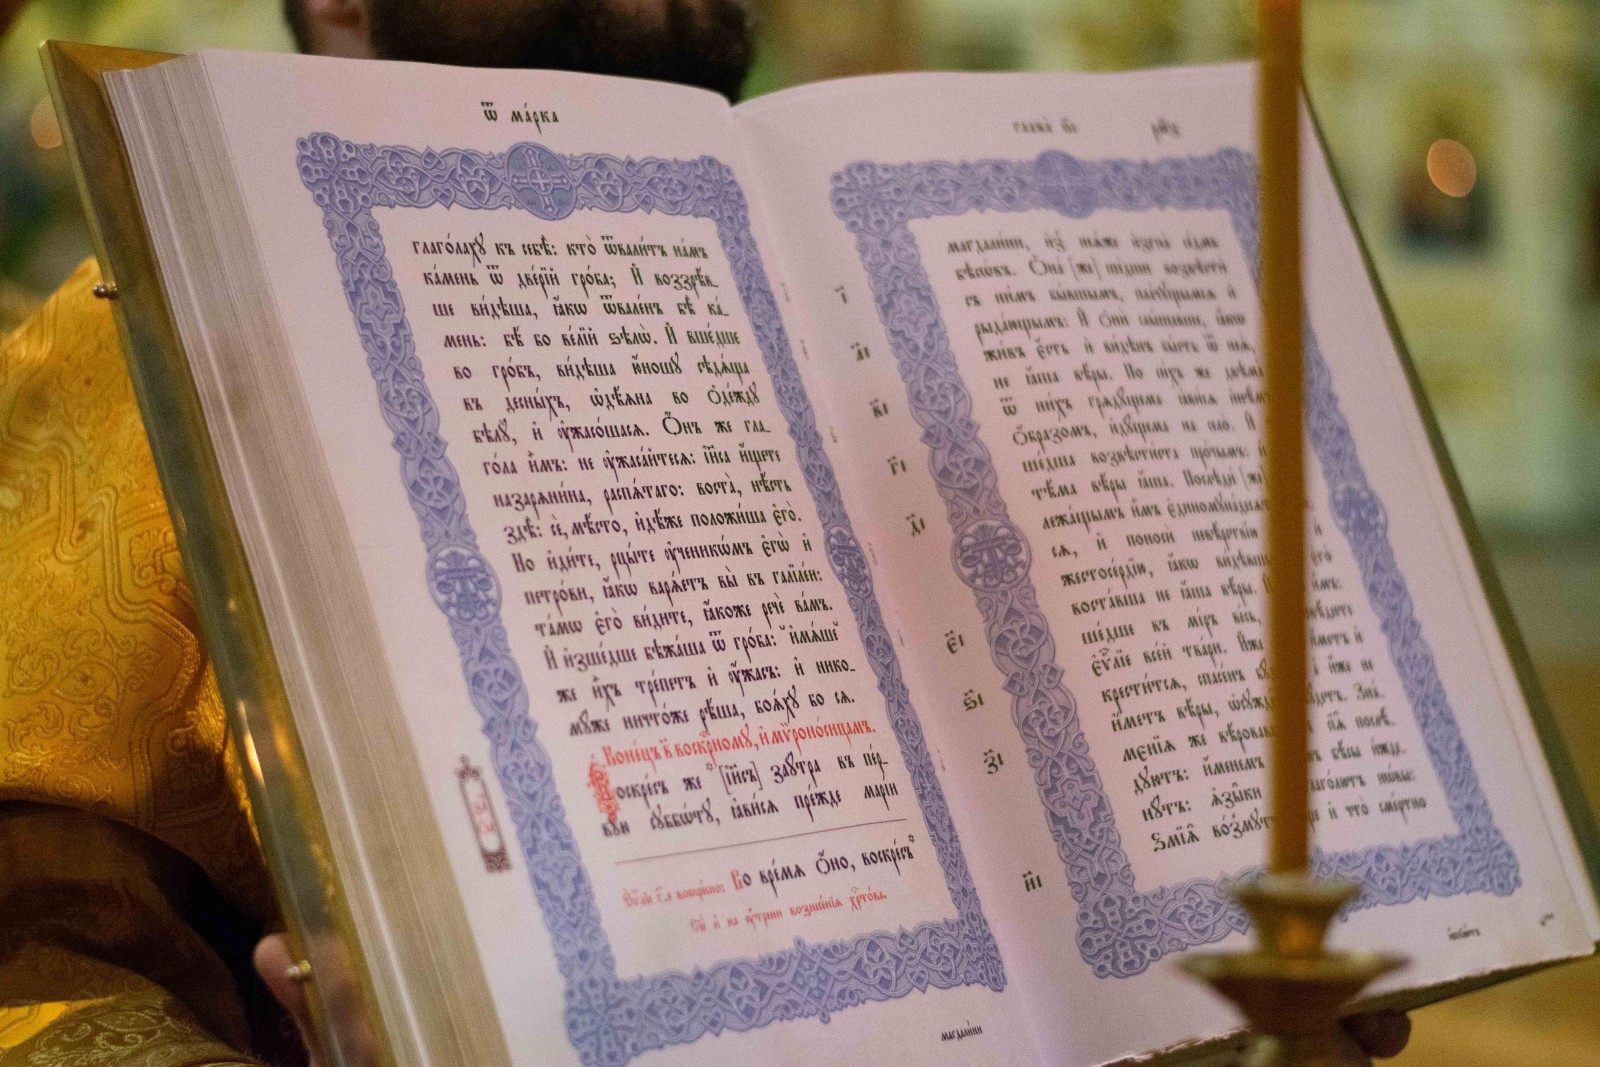 Ѿ ма́рка
глаго́лаху къ себѣ̀: кто̀ ѿвали́тъ на́мъ
ка́мень ѿ две́рїй гро́ба; И҆ воззрѣ́в_
ше ви́дѣша, ꙗ҆́кѡ ѿвале́нъ бѣ̀ ка́_
мень: бѣ́ бо ве́лїй ѕѣлѡ̀. И҆ вше́дше
во гро́бъ, ви́дѣша ю҆́ношу сѣдѧ́ща
въ десны́хъ, ѡ҆дѣ́ѧна во ѻ҆де́жду
бѣ́лу, и҆ ᲂу҆жасо́шасѧ. Ѻ҆́нъ же гла_
го́ла и҆̀мъ: не ᲂу҆жаса́йтесѧ: і҆и҃са и҆́щете
назарѧни́на, распѧ́таго: воста̀, нѣ́сть
здѣ̀: сѐ, мѣ́сто, и҆дѣ́же положи́ша є҆го̀.
Но и҆ди́те, рцы́те ᲂу҆ченикѡ́мъ є҆гѡ̀ и҆
петро́ви, ꙗ҆́кѡ варѧ́етъ вы̀ въ галїле́и:
та́мѡ є҆го̀ ви́дите, ꙗ҆́коже речѐ ва́мъ.
И҆ и҆зше́дше бѣжа́ша ѿ гро́ба: и҆мѧ́ше
же и҆̀хъ тре́петъ и҆ ᲂу҆́жасъ: и҆ нико_
му́же ничто́же рѣ́ша, боѧ́ху бо сѧ.
Коне́цъ в҃ воскр҇ному, и҆ мѵроно́сицамъ.
Воскре́съ же* [і҆и҃съ] зау́тра въ пе́р_
вую сꙋббѡ́тꙋ, ꙗ҆ви́сѧ пре́жде марі́и
Во вре́мѧ ѻ҆́но, воскре́съ*
магдали́ни
глава̀ ѕ҃і
магдали́ни, и҆з̾ неѧ́же и҆згна̀ се́дмь
бѣсѡ́въ. Ѻ҆на̀ [же] ше́дши возвѣстѝ
съ ни́мъ бы́вшымъ, пла́чущымсѧ и҆
рыда́ющымъ: И҆ ѻ҆нѝ слы́шавше, ꙗ҆́кѡ
жи́въ є҆́сть и҆ ви́дѣнъ бы́сть ѿ неѧ̀,
не ꙗ҆́ша вѣ́ры. По си́хъ же двѣма̀
ѿ ни́хъ грѧду́щема ꙗ҆ви́сѧ и҆нѣ́мъ
ѻ҆́бразомъ, и҆ду́щема на село̀. И҆
ше́дша возвѣсти́ста про́чымъ: и҆
тѣ́ма вѣ́ры ꙗ҆́ша. Послѣдѝ [же]
лежа́щымъ и҆̀мъ є҆диномуна́десѧте
сѧ, и҆ поносѝ невѣ́рствїю
жестосе́рдїю, ꙗ҆́кѡ ви́дѣвшымъ є҆го̀
воста́вша не ꙗ҆́ша вѣ́ры. И҆ и҆̀мъ:
ше́дше въ мі́ръ ве́сь,
є҆ѵⷢ҇лїе все́й тва́ри. И҆́же и҆́метъ и҆
крести́тсѧ, спасе́нъ бу́ и҆ и҆́же не
и҆́метъ вѣ́ры, ѡ҆сужде́нъ бу́детъ. Зна́_
мєнїѧ же вѣ́ровавшымъ сїѧ̑ послѣ́_
дуютъ: и҆́менемъ бѣ́сы и҆жде_
ну́тъ: ѧ҆зы̑ки возглаго́лютъ но̑вы:
Ѕмїѧ̑ во́змутъ и҆ что̀ сме́ртно
і҃
а҃і
в҃і
г҃і
д҃і
є҃і
ѕ҃і
з҃і
и҃і